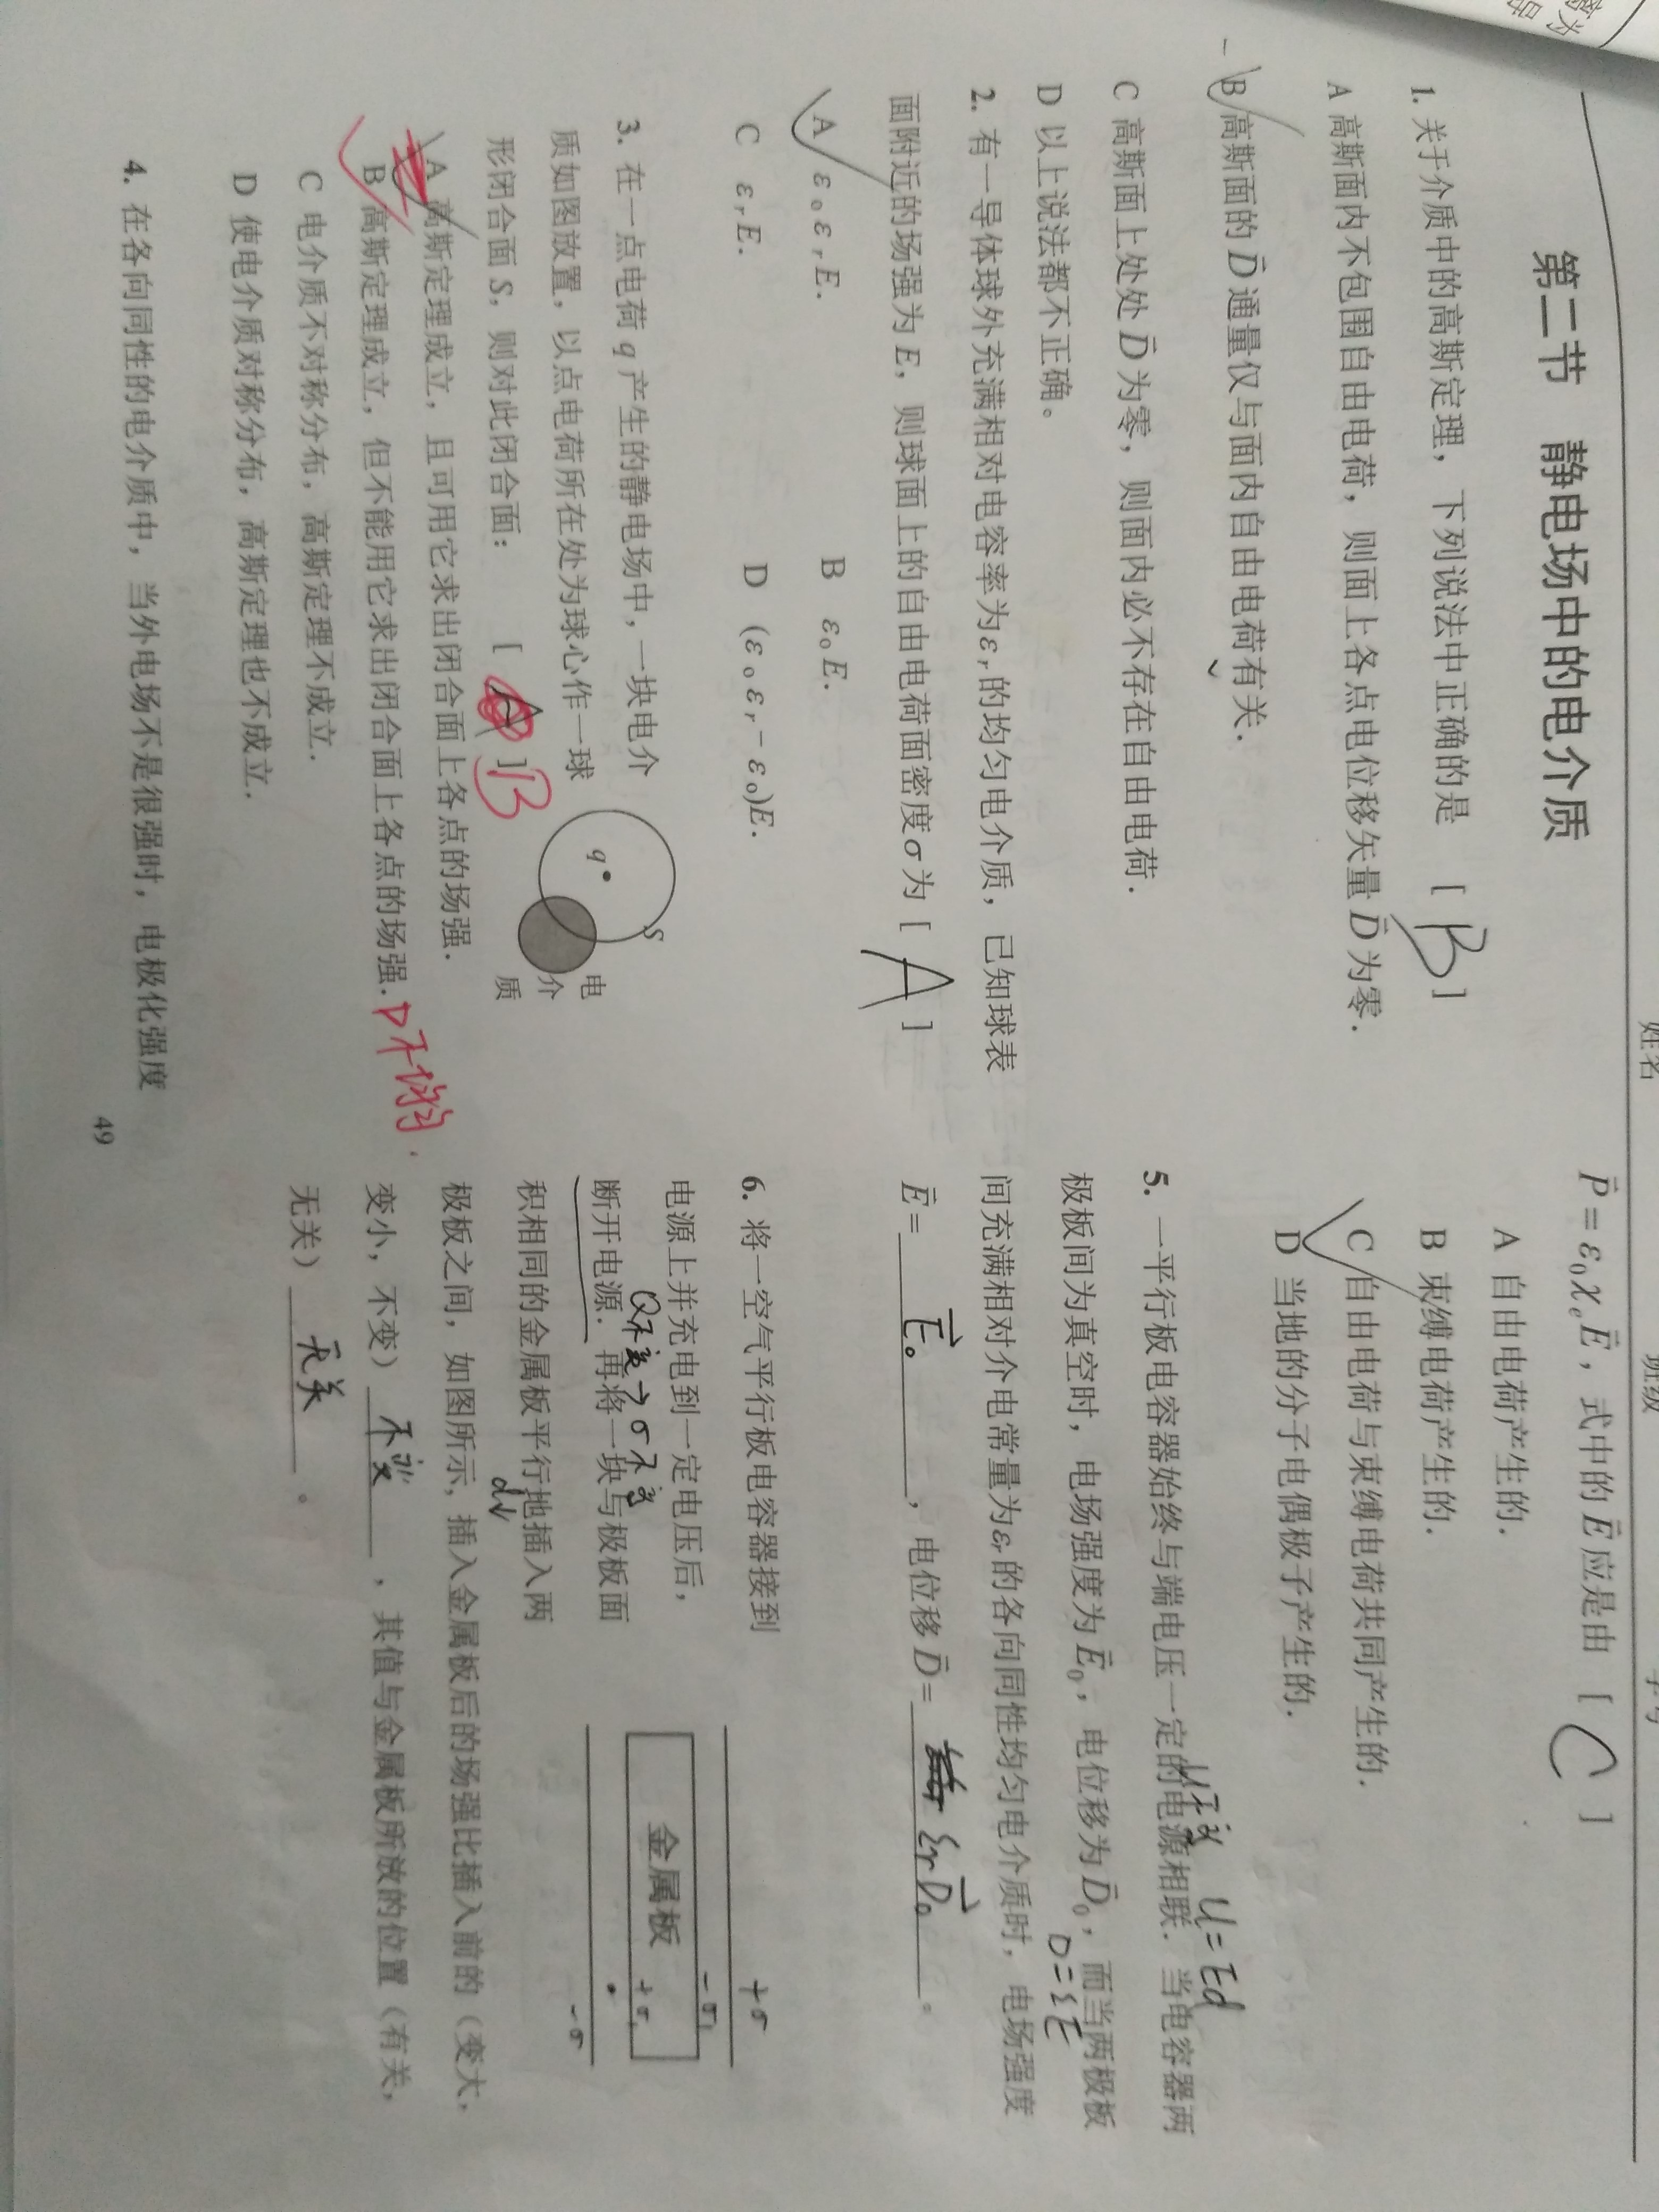 姓名
班级
学号
第二节 静电场中的电介质
1. 关于介质中的高斯定理，下列说法中正确的是 [ B ]
A 高斯面内不包围自由电荷，则面上各点电位移矢量 D⃗ 为零.
B 高斯面的 D⃗ 通量仅与面内自由电荷有关.
C 高斯面上处处 D⃗ 为零，则面内必不存在自由电荷.
D 以上说法都不正确。
2. 有一导体球外充满相对电容率为εr的均匀电介质，已知球表
面附近的场强为 E，则球面上的自由电荷面密度σ为 [ A ]
A ε0εrE. B ε0E.
C εrE. D (ε0εr－ε0)E.
3. 在一点电荷 q 产生的静电场中，一块电介
质如图放置，以点电荷所在处为球心作一球
形闭合面 S，则对此闭合面： [ A ] B
q
S
电
介
质
A 高斯定理成立，且可用它求出闭合面上各点的场强.
B 高斯定理成立，但不能用它求出闭合面上各点的场强.
C 电介质不对称分布，高斯定理不成立.
D 使电介质对称分布，高斯定理也不成立.
4. 在各向同性的电介质中，当外电场不是很强时，电极化强度
49
P⃗ = ε0χeE⃗，式中的 E⃗ 应是由 [ C ]
A 自由电荷产生的.
B 束缚电荷产生的.
C 自由电荷与束缚电荷共同产生的.
D 当地的分子电偶极子产生的.
U不变 U=Ed
5. 一平行板电容器始终与端电压一定的电源相联. 当电容器两
极板间为真空时，电场强度为 E⃗0，电位移为 D⃗0，而当两极板
D=εE
间充满相对介电常量为εr的各向同性均匀电介质时，电场强度
E⃗ = E⃗0 ，电位移 D⃗ = εrD⃗0 。
6. 将一空气平行板电容器接到
电源上并充电到一定电压后，
Q不变→σ不变
断开电源. 再将一块与极板面
积相同的金属板平行地插入两
d↓
极板之间，如图所示，插入金属板后的场强比插入前的（变大，
变小，不变） 不变 ，其值与金属板所放的位置（有关，
无关） 无关 。
+σ
-σ1
金属板
+σ1
-σ